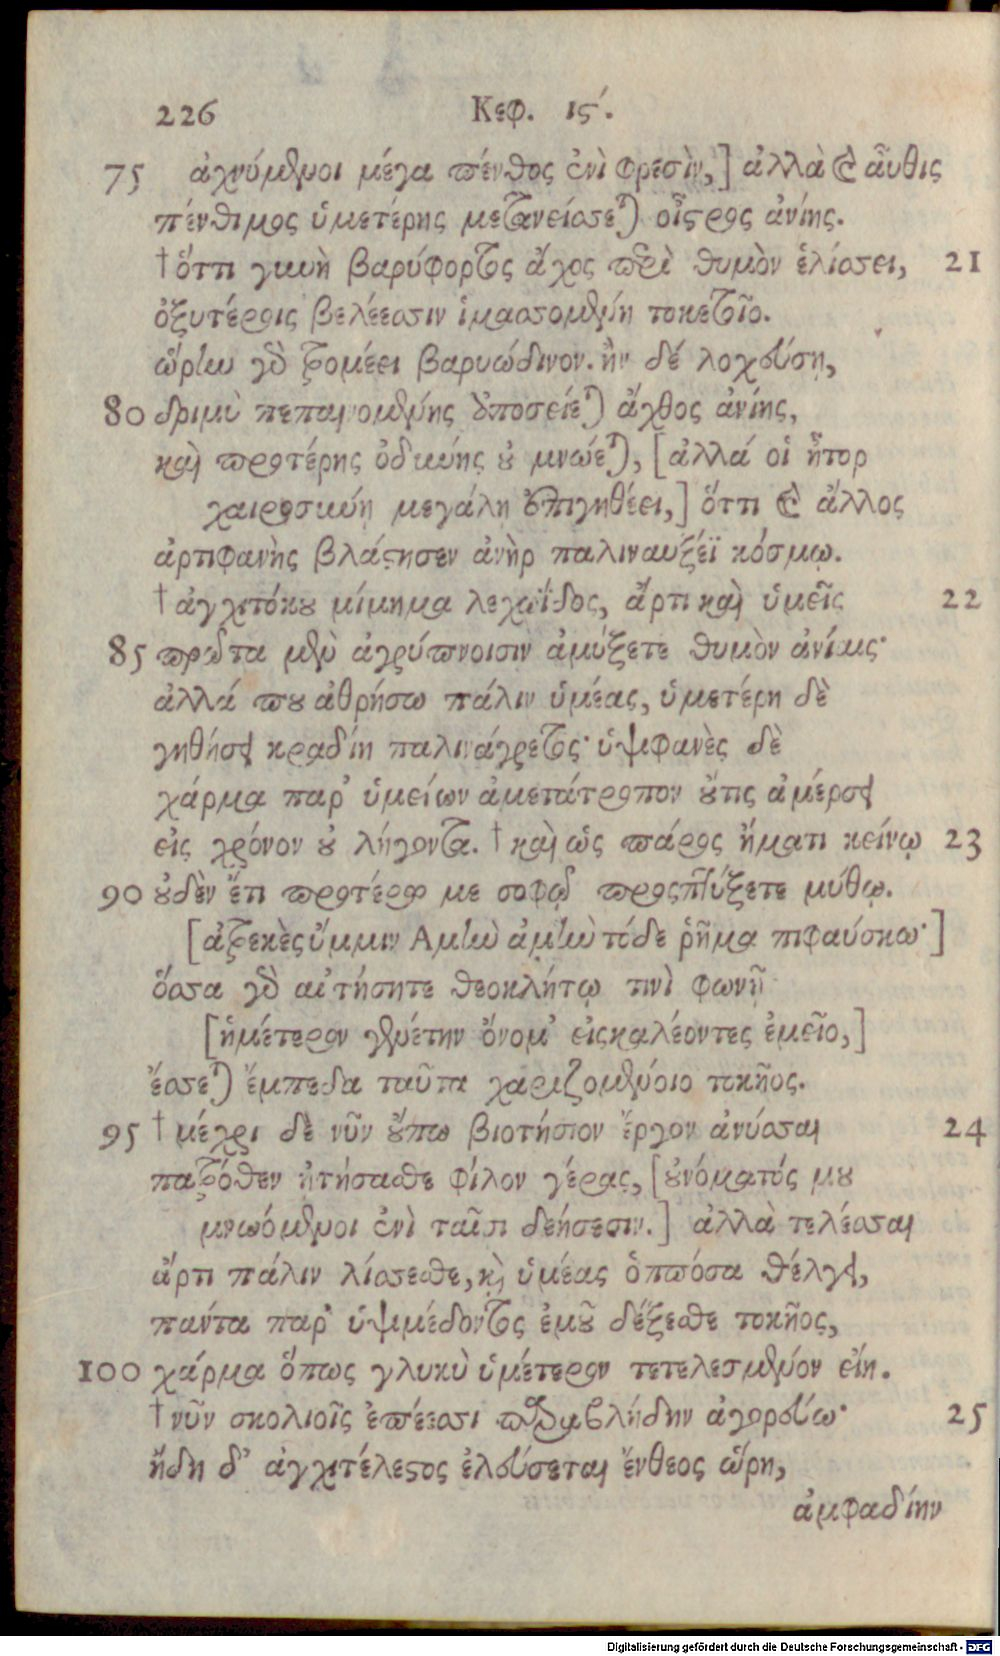 226 Κεφ. ιϛ΄.
75 ἀχνύμενοι μέγα πένθος ἐνὶ φρεσὶν,] ἀλλὰ καὶ αὖθις
πένθιμος ὑμετέρης μετανείσεται οἶστρος ἀνίης.
† ὅττι γυνὴ βαρύφορτος ἄχος περὶ θυμὸν ἑλίσσει, 21
ὀξυτέροις βελέεσσιν ἱμασσομένη τοκετοῖο.
ὥρην γὰρ τρομέει βαρυώδινον. ἢν δὲ λοχεύσῃ,
80 δριμὺ πεπαινομένης ὑποσείεται ἄχθος ἀνίης,
καὶ προτέρης ὀδύνης οὐ μνώεται, [ἀλλά οἱ ἦτορ
χαιροσύνῃ μεγάλῃ ἐπιγηθέει,] ὅττι καὶ ἄλλος
ἀρτιφανὴς βλάστησεν ἀνὴρ παλιναυξέϊ κόσμῳ.
† ἀγχιτόκου μίμημα λεχωΐδος, ἄρτι καὶ ὑμεῖς 22
85 πρῶτα μὲν ἀγρύπνοισιν ἀμύξετε θυμὸν ἀνίαις·
ἀλλά που ἀθρήσω πάλιν ὑμέας, ὑμετέρη δὲ
γηθήσει κραδίη παλινάγρετος· ὑψιφανὲς δὲ
χάρμα παρ' ὑμείων ἀμετάτροπον οὔτις ἀμέρσει
εἰς χρόνον οὐ λήγοντα. † καὶ ὡς πάρος ἤματι κείνῳ 23
90 οὐδὲν ἔτι προτέρῳ με σοφῷ προςπτύξετε μύθῳ.
[ἀτρεκὲς ὔμμιν Ἀμὴν ἀμὴν τόδε ῥῆμα πιφαύσκω·]
ὅσσα γὰρ αἰτήσητε θεοκλήτῳ τινὶ φωνῇ
[ἡμέτερον γενέτην ὄνομ' εἰςκαλέοντες ἐμεῖο,]
ἔσσεται ἔμπεδα ταῦτα χαριζομένοιο τοκῆος.
95 † μέχρι δὲ νῦν οὔπω βιοτήσιον ἔργον ἀνύσσαι 24
πατρόθεν ᾐτήσασθε φίλον γέρας, [οὐνόματός μου
μνωόμενοι ἐνὶ ταῖσι δεήσεσιν.] ἀλλὰ τελέσσαι
ἄρτι πάλιν λίσσεσθε, καὶ ὑμέας ὁππόσα θέλγει,
πάντα παρ' ὑψιμέδοντος ἐμοῦ δέξεσθε τοκῆος,
100 χάρμα ὅπως γλυκὺ ὑμέτερον τετελεσμένον εἴη.
† νῦν σκολιοῖς ἐπέεσσι παραβλήδην ἀγορεύω· 25
ἤδη δ' ἀγχιτέλεστος ἐλεύσεται ἔνθεος ὥρη,
ἀμφαδίην
Digitalisierung gefördert durch die Deutsche Forschungsgemeinschaft - DFG